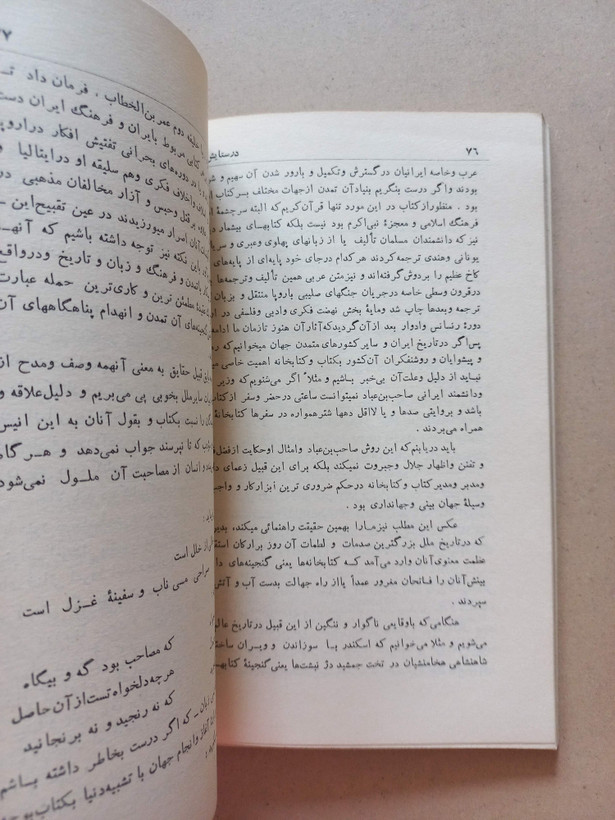 ۷۶
درستایش
عرب وخاصه ایرانیان درگسترش وتکمیل و بارور شدن آن سهیم و شر
بودند واگر درست بنگریم بنیادآن تمدن ازجهات مختلف بسرکتاب ا
بود . منظورازکتاب در این مورد تنها قرآن‌کریم‌که البته سرچشمهٔ ا
فرهنگ اسلامی و معجزهٔ نبی‌اکرم بود نیست بلکه کتابهای بیشمار د
نیزکه دانشمندان مسلمان تألیف یا از زبانهای پهلوی وعبری و سریا
یونانی وهندی ترجمه‌کردند هرکدام درجای خود پایه‌ای از پایه‌های
کاخ عظیم را بردوش گرفته‌اند و نیزمتن عربی همین تألیف وترجمه‌ها
درقرون وسطی خاصه درجریان جنگهای صلیبی باروپا منتقل و بزبان
ترجمه وبعدها چاپ شد ومایهٔ بخش نهضت فکری وادبی وفلسفی در
دورهٔ رنسانس وادوار بعد ازآن گردیدکه‌آثارآن هنوز تازمان ما ادامه
پس‌اگر درتاریخ ایران و سایر کشورهای متمدن جهان میخوانیم‌که
و پیشوایان و روشنفکران آن‌کشور بکتاب وکتابخانه اهمیت خاصی
نباید از دلیل وعلت‌آن بی‌خبر باشیم و مثلا اگر می‌شنویم‌که وزیر
ودانشمند ایرانی صاحب‌بن‌عباد نمیتوانست ساعتی درحضر وسفر ازکتاب
باشد و بروایتی صدها و یا لااقل دهها شترهمواره در سفرها کتابخانهٔ
همراه می‌بردند .
باید دریابیم‌که این روش صاحب‌بن‌عباد وامثال اوحکایت ازفضل
و تفنن واظهار جلال وجبروت نمیکند بلکه برای این قبیل زعمای
ومدبر ومدیرکتاب وکتابخانه درحکم ضروری ترین ابزارکار و واجب
وسیلهٔ جهان بینی وجهانداری بود .
عکس این مطلب نیزمارا بهمین حقیقت راهنمائی میکند، بدین
که درتاریخ ملل بزرگترین صدمات و لطمات آن روز برارکان استقلال
عظمت معنوی‌آنان وارد می‌آمد کـه کتابخانه‌ها یعنی گنجینه‌های دا
بینش‌آنان را فـاتحان مغرور عمداً یااز راه جهالت بدست آب و آتش
سپردند .
هنگامی‌که باوقایعی ناگوار و ننگین از این قبیل درتاریخ عالم
می‌شویم و مثلا می‌خوانیم که اسکندر بـا سوزاندن و ویـران ساختن
شاهنشاهی هخامنشیان در تخت جمشید دژ نبشت‌ها یعنی‌گنجینهٔ کتابهـ
خلیفه دوم عمربن‌الخطاب ، فرمان داد تـ
مربوط بایران و فرهنگ ایران دست
در دوره‌های بحرانی تفتیش افکار دراروپا
واخلاف فکری وهم سلیقه او درایتالیا و
برقتل وحبس و آزار مخالفان مذهبی در
اصرار میورزیدند در عین تقبیح‌این
این نکته نیز توجه داشته باشیم که آنهـ
وفرهنگ و زبان و تاریخ ودرواقع
مطمئن ترین و کاری‌ترین حمله عبارت
گنجینه‌های آن تمدن و انهدام پناهگاههای آن
قبیل حقایق به معنی آنهمه وصف ومدح از
سایرملل بخوبی پی می‌بریم و دلیل‌علاقه و
را نسبت بکتاب و بقول آنان به این انیس
که تا نپرسند جواب نمی‌دهد و هـرگاه
انسان از مصاحبت آن ملـول نمی‌شود
از خلل است
صراحی می ناب و سفینهٔ غـزل است
که مصاحب بود گه و بیگاه
هرچه دلخواه تست‌ازآن حاصل
که نه رنجید و نه برنجانید
که اگر درست بخاطر داشته بـاشم
آغاز وانجام جهان با تشبیه‌دنیا بکتاب